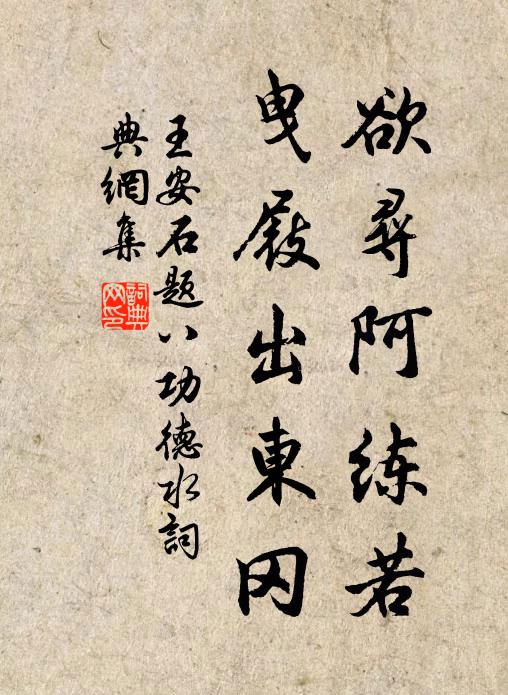 欲尋阿練若
曳屐出東冈
王安石題八功德水詞
典網集
詞典
网印